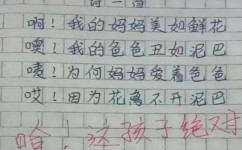 啊！我的妈妈美如鲜花
噢！我的爸爸丑如泥巴
唛！为何妈妈爱着爸爸
哎！因为花离不开泥巴
哈！这孩子绝对